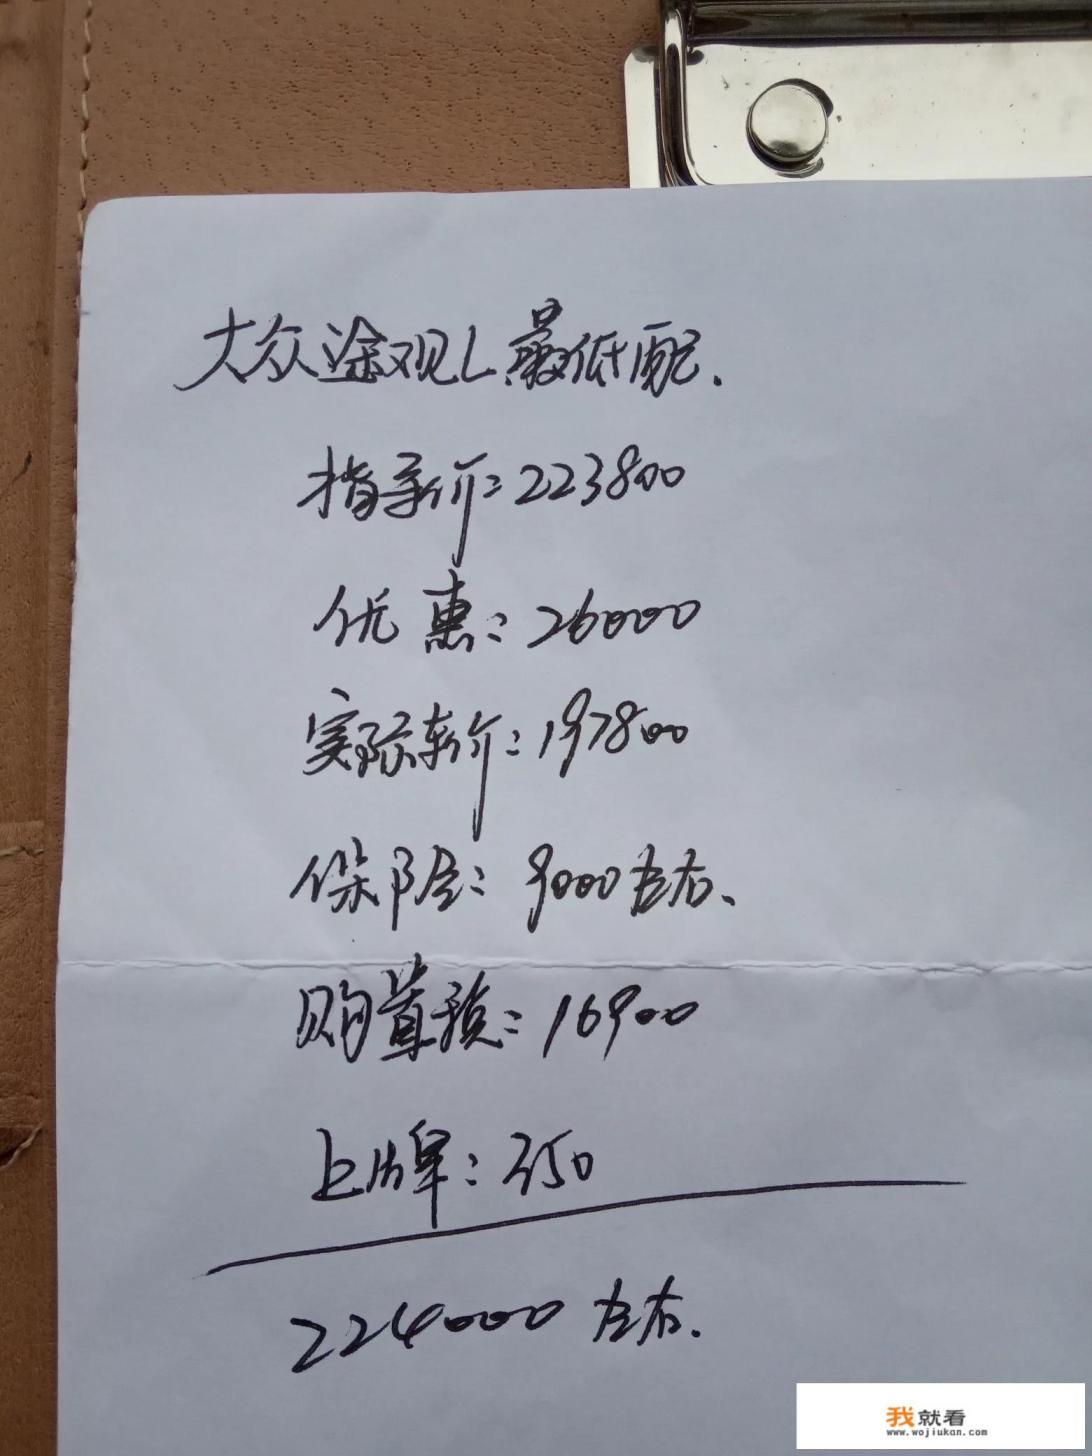 大众途观L最低配.
指导价:223800
优惠:26000
实际车价:197800
保险:9000左右.
购置税:16900
上牌:350
224000左右.
我就看
www.wojiukan.com